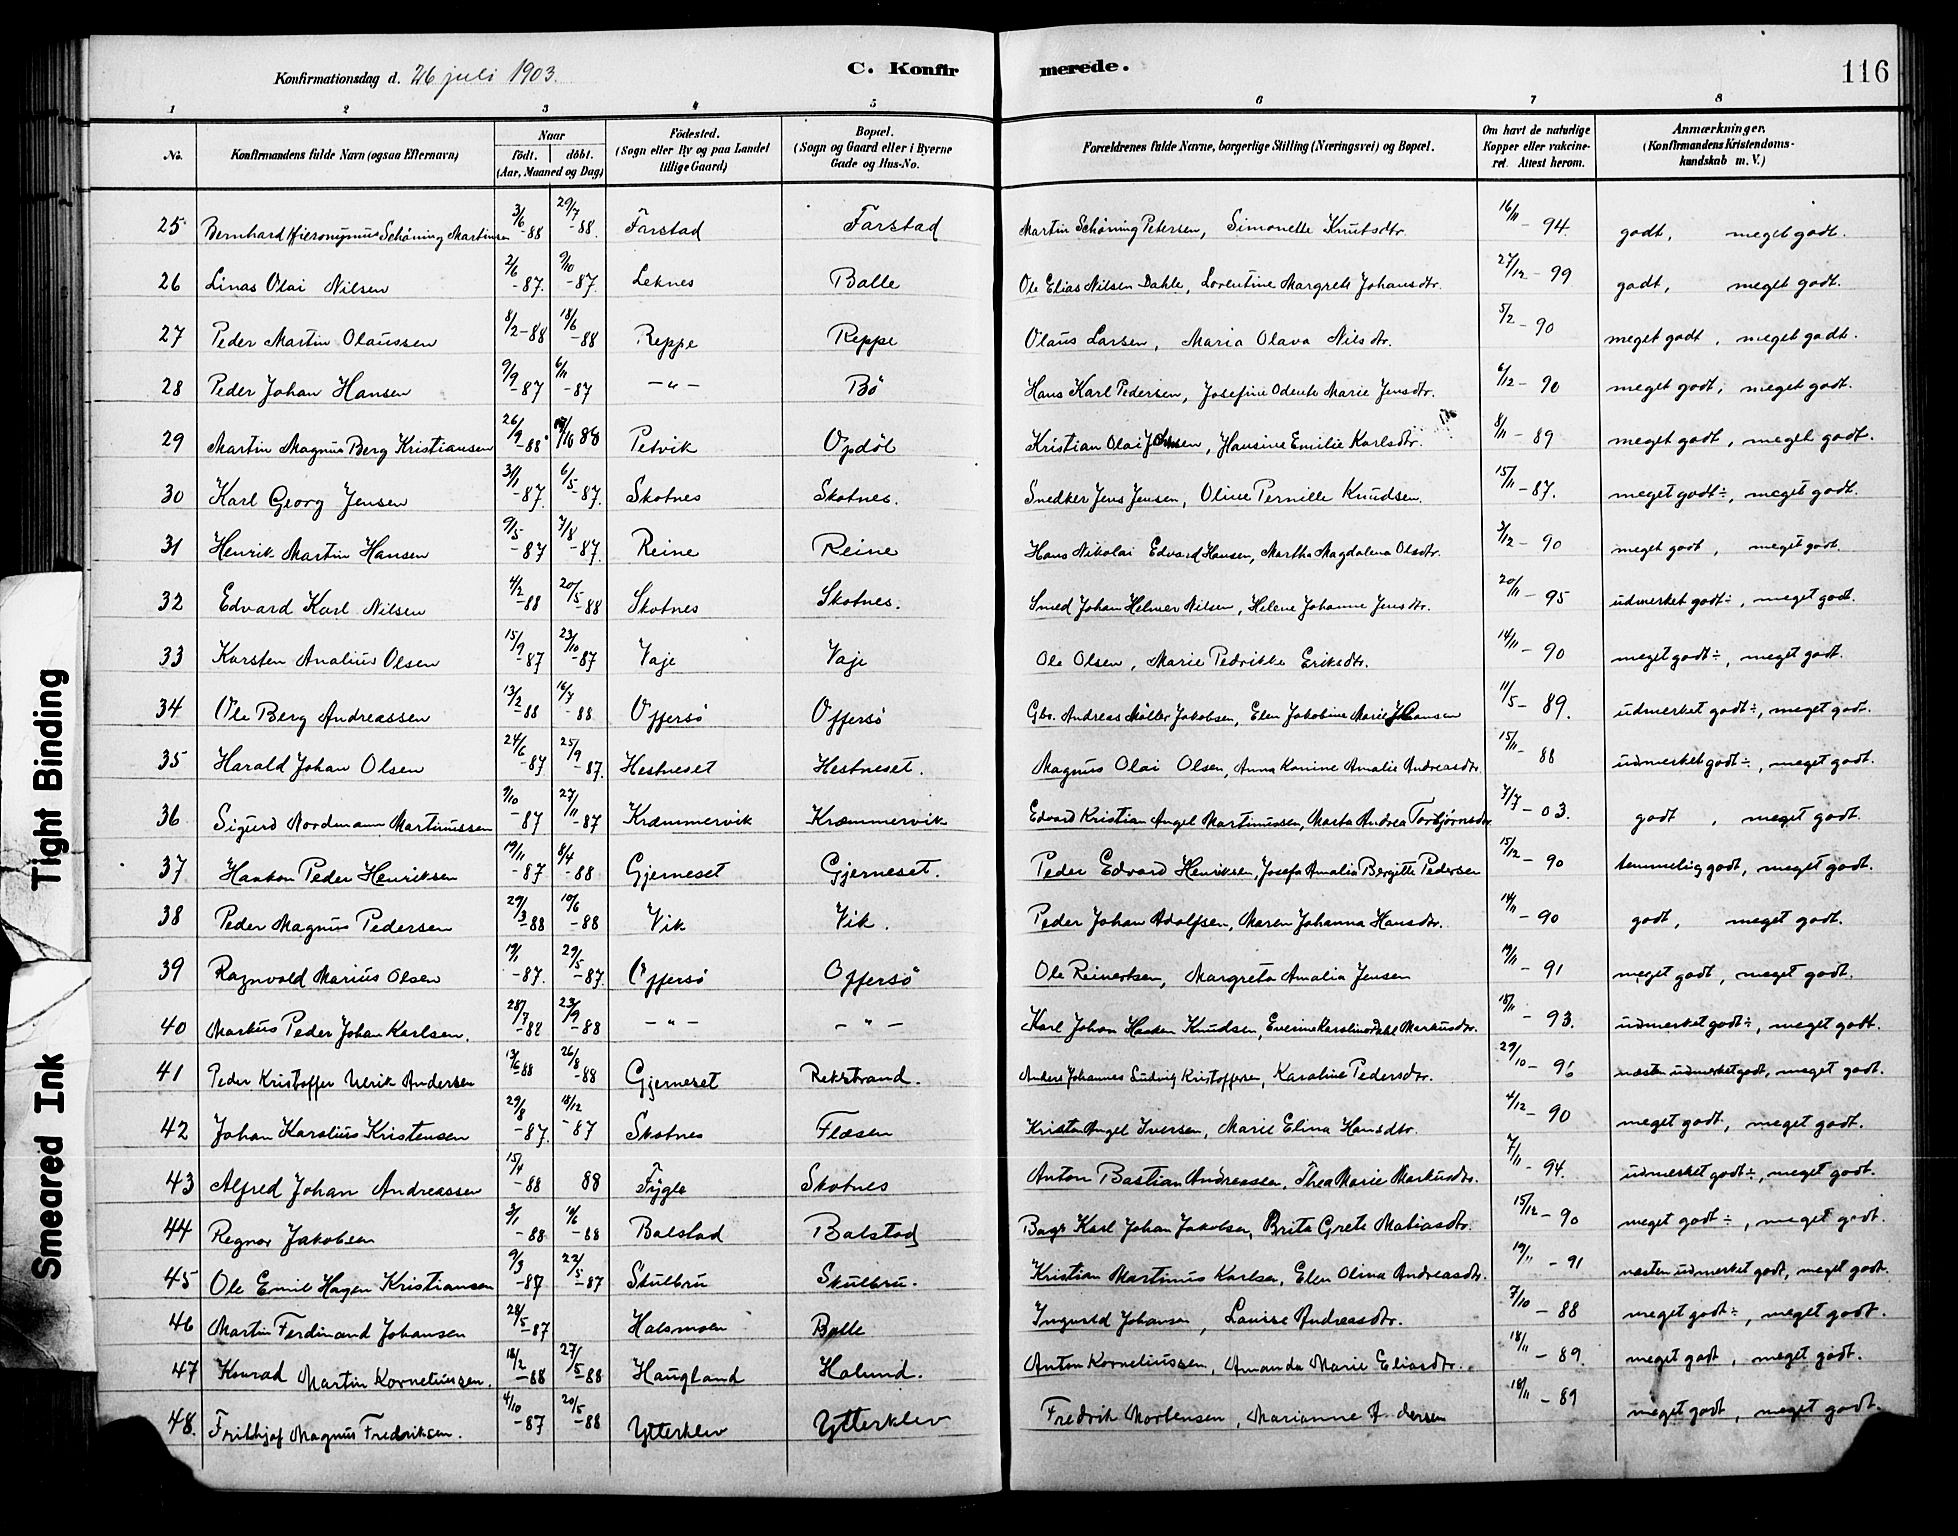 Konfirmationsdag d. 26 juli 1903. C. Konfirmerede. 116
1 2 3 4 5 6 7 8
No. Konfirmandens fulde Navn (ogsaa Efternavn) Naar födt. döbt. (Aar, Maaned og Dag) Födested. (Sogn eller By og paa Landet tillige Gaard) Bopæl. (Sogn og Gaard eller i Byerne Gade og Hus-No. Forældrenes fulde Navne, borgerlige Stilling (Næringsvei) og Bopæl. Om havt de naturlige Kopper eller vakcineret. Attest herom. Anmærkninger. (Konfirmandens Kristendomskundskab m. V.)
25 Bernhard Hieronymus Schöning Martinsen 3/6-88 29/7-88. Farstad Farstad Martin Schöning Petersen, Simonette Knutsdtr. 16/11-94. godt, meget godt.
26 Linas Olai Nilsen 2/6-87. 9/10-87. Leknes Balle Ole Elias Nilsen Dahle, Lorentine Margrete Johansdtr. 27/12-99 godt, meget godt.
27 Peder Martin Olaussen 8/2-88 18/6-88 Reppe Reppe Olaus Larsen, Maria Olava Nilsdtr. 5/2-90 meget godt, meget godt.
28 Peder Johan Hansen 9/9-87 6/11-87 -"- Bö Hans Karl Pedersen, Josefine Odente Marie Jensdtr. 6/12-90 meget godt, meget godt.
29 Martin Magnus Berg Kristiansen 26/9-88 /10 88 Petvik Opdöl Kristian Olai Johnsen, Hansine Emilie Karlsdtr. 8/11-89 meget godt, meget godt.
30 Karl Georg Jensen 3/11-87. 6/5-87. Skotnes Skotnes. Snedker Jens Jensen, Oline Pernille Knudsen. 15/11-87. meget godt÷, meget godt.
31 Henrik Martin Hansen 9/5-87 7/8-87. Reine Reine Hans Nikolai Edvard Hansen, Martha Magdalena Olsdtr. 3/12-90 meget godt, meget godt.
32 Edvard Karl Nilsen 4/2-88 20/5-88 Skotnes Skotnes. Smed Johan Helmer Nilsen, Helene Johanne Jensdtr. 20/11-95 udmerket godt÷, meget godt.
33 Karsten Analius Olsen 15/9-87 23/10-87 Vaje Vaje Ole Olsen, Marie Pedrikke Eriksdtr. 14/11-90 meget godt÷, meget godt.
34 Ole Berg Andreassen 13/2-88 16/7-88 Offersö Offersö Gbr. Andreas Möller Jakobsen, Elen Jakobine Marie Johansen 11/5-89. udmerket godt÷, meget godt.
35 Harald Johan Olsen 24/6-87 25/9-87. Hestneset Hestneset. Magnus Olai Olsen, Anna Konine Amalie Andreasdtr. 15/11-88 udmerket godt÷, meget godt.
36 Sigurd Nordmann Martinussen 9/10-87 27/11-87 Kræmmervik Kræmmervik Edvard Kristian Angel Martinussen, Marta Andrea Torbjörnsdtr. 7/7-03. godt, meget godt.
37 Haakon Peder Henriksen 19/11-87 8/4-88 Gjerneset Gjerneset. Peder Edvard Henriksen, Josefa Amalia Bergitte Pedersen 15/12-90 temmelig godt, meget godt.
38 Peder Magnus Pedersen 29/3-88 10/6-88 Vik Vik. Peder Johan Adolfsen, Maren Johanna Hansdtr. 14/11-90 godt, meget godt.
39 Ragnvald Marius Olsen 19/1-87. 29/5-87. Offersö Offersö Ole Reinertsen, Margreta Amalia Jensen 19/11-91 meget godt, meget godt.
40 Markus Peder Johan Karlsen. 28/7-88 23/9-88 -"- -"- Karl Johan Haaken Knudsen, Everine Karoline Dahl Markusdtr. 18/11-93. udmerket godt÷, meget godt.
41 Peder Kristoffer Ulrik Andersen 13/6-88 26/8-88 Gjerneset Rekstrand. Anders Johannes Ludvig Kristoffersen, Karoline Pedersdtr. 29/10-96 næsten udmerket godt, meget godt.
42 Johan Karolius Kristensen 29/8-87. 18/12-87 Skotnes Flæsen Kristen Angel Iversen, Marie Elina Hansdtr. 4/12-90 meget godt, meget godt.
43 Alfred Johan Andreassen 15/4-88 88 Fygle Skotnes Anton Bastian Andreasen, Thea Marie Markusdtr. 7/11-94. udmerket godt÷, meget godt.
44 Regnor Jakobsen 3/1-88 10/6-88 Balstad Balstad Bagr Karl Johan Jakobsen, Brita Grete Matiasdtr. 15/12-90 meget godt÷, meget godt.
45 Ole Emil Hagen Kristiansen 9/3-87 22/5-87 Skulbru Skulbru. Kristian Martinus Karlsen, Elen Olina Andreasdtr. 19/11-91 næsten udmerket godt, meget godt.
46 Martin Ferdinand Johansen 28/5-87 Halsmoen Balle Ingvald Johansen, Lovise Andreasdtr. 7/10-88 meget godt÷, meget godt.
47 Konrad Martin Korneliussen. 18/2-88 27/5-88 Haugland Holund. Anton Korneliussen, Amanda Marie Eliasdtr. 18/11-89. meget godt, meget godt.
48. Frithjof Magnus Fredriksen. 4/10-87 20/5-88 Ytterklev Ytterklev Fredrik Mortensen, Marianne A dersen 18/11-89 meget godt, meget godt.
Tight Binding
Smeared Ink